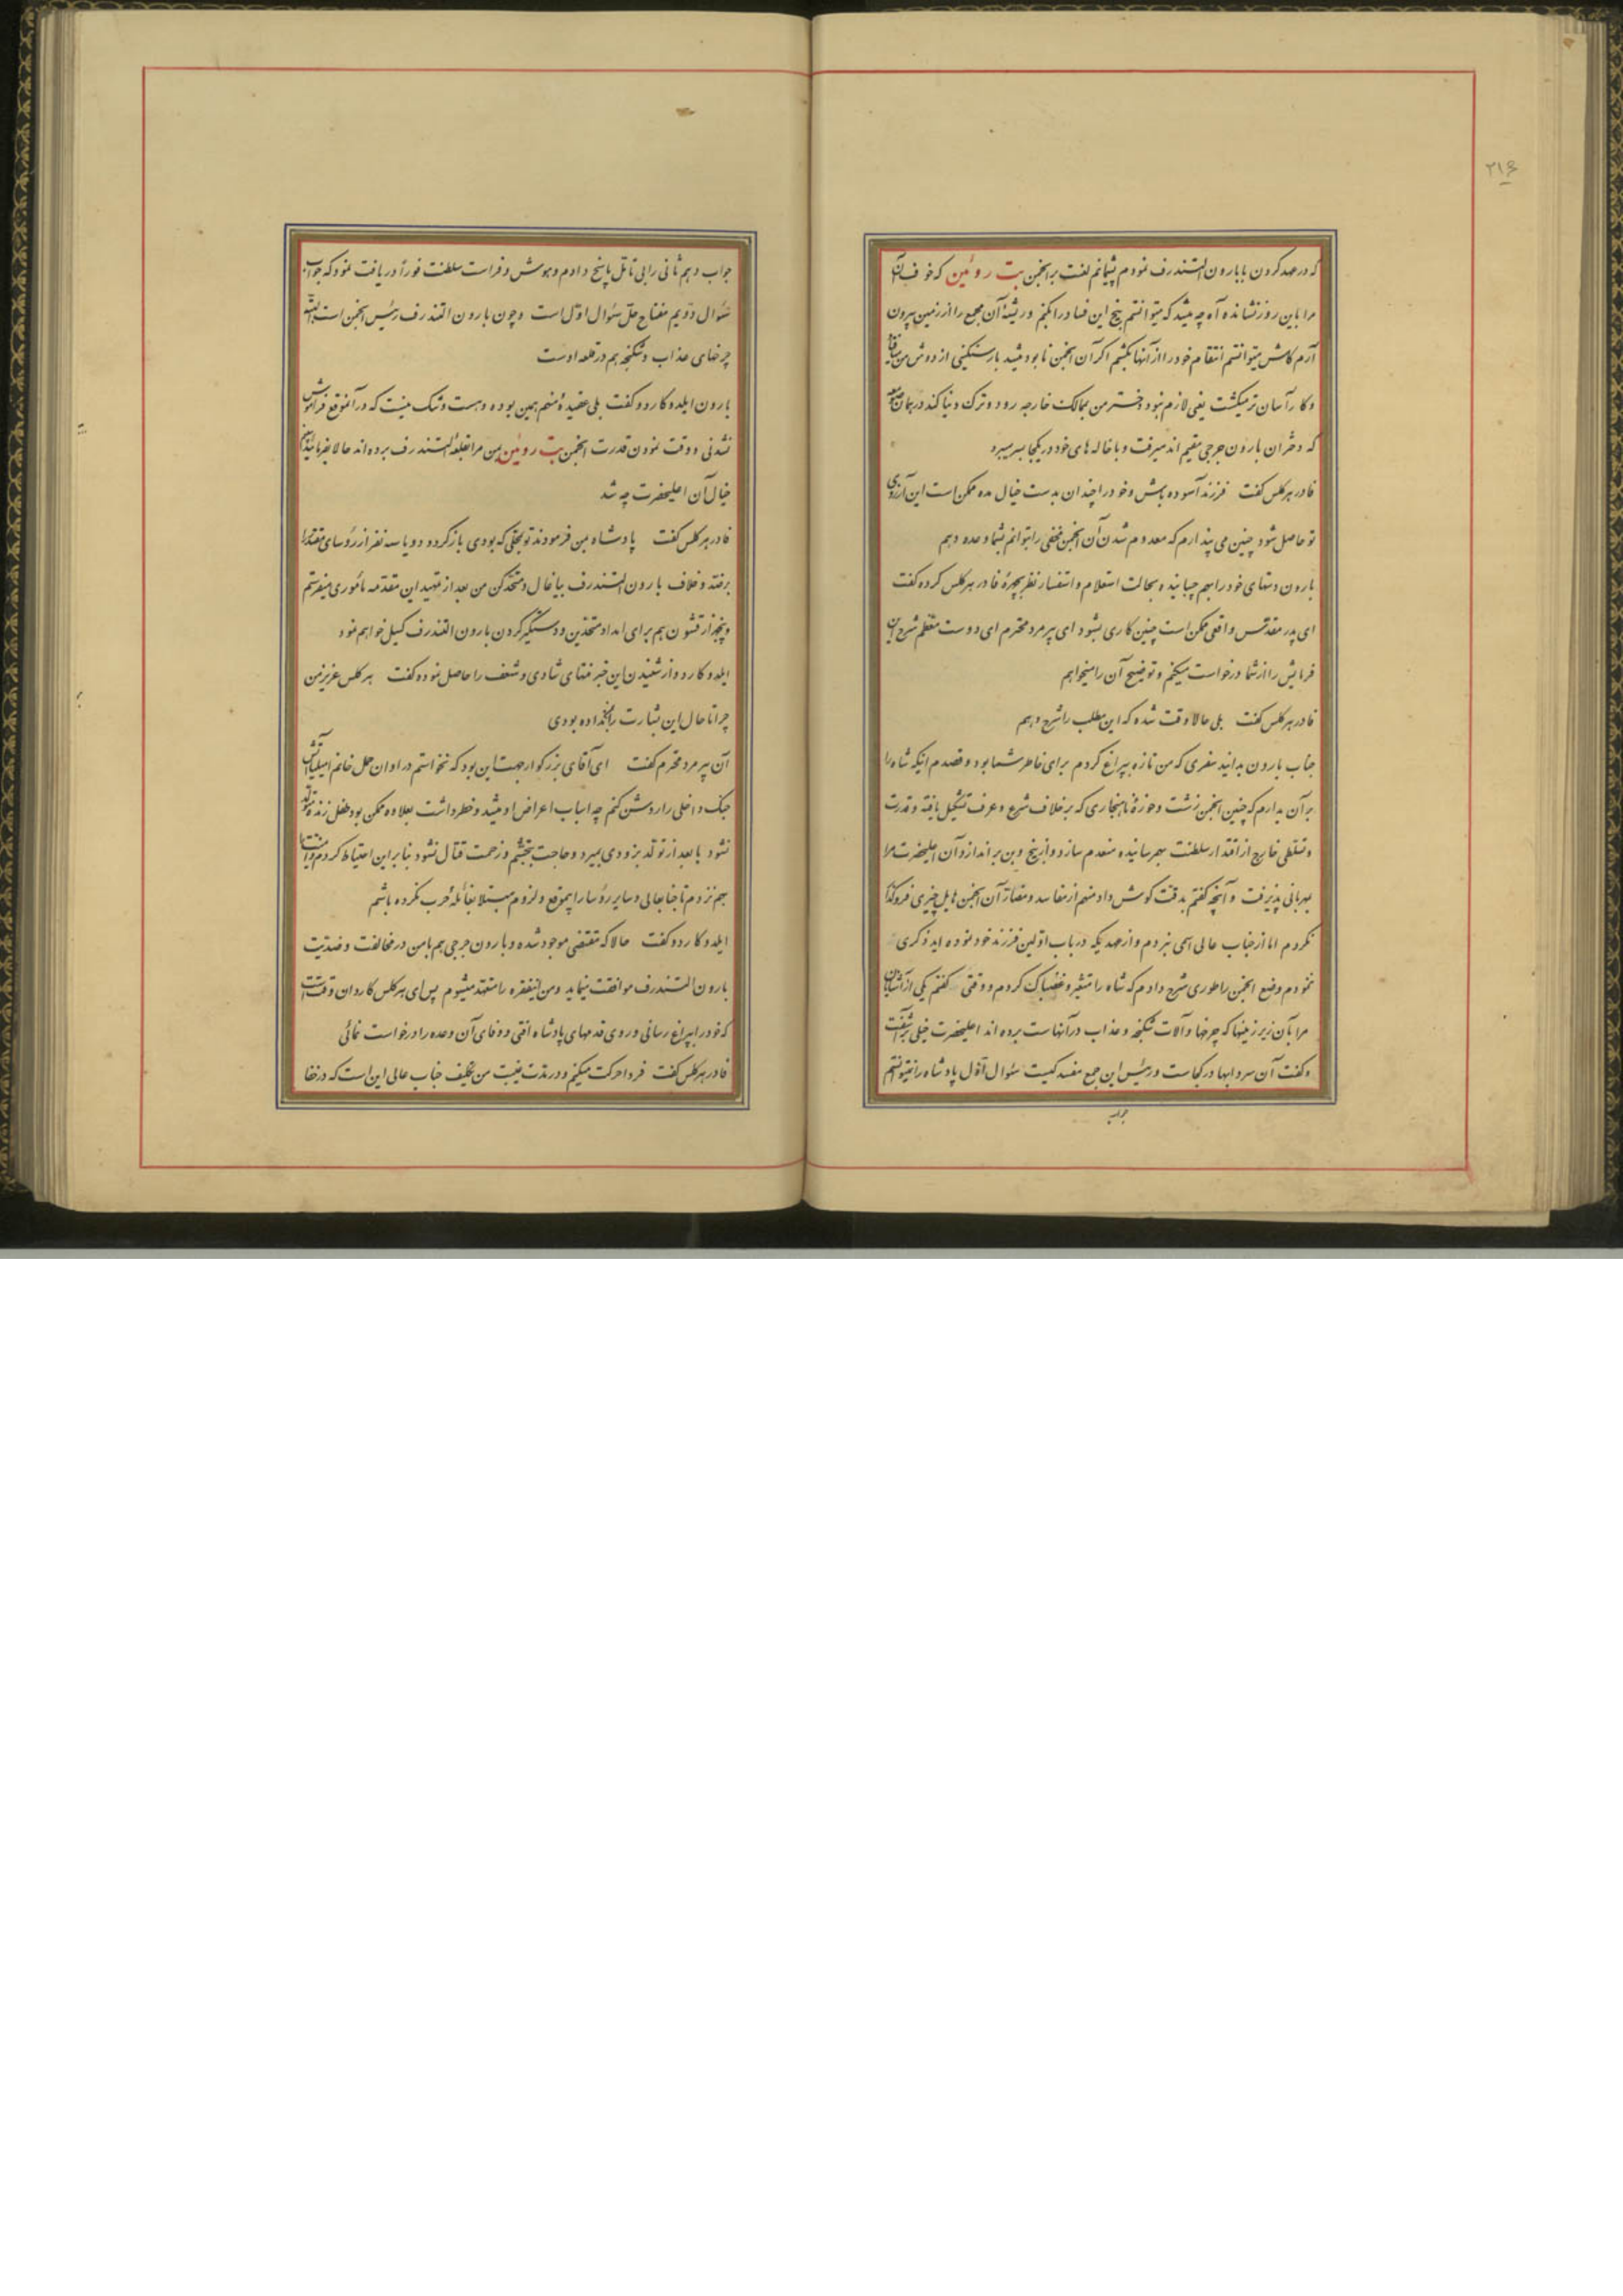 ۲۱۶
که در عهد کردن با بارون التندرف نمودم پشیمانم لعنت بر انجمن بت روئین که خوف آن
مرا باین روز نشانده آه چه میشد که میتوانستم بیخ این فساد را بکنم و ریشهٔ آن مجمع را از زمین بیرون
آرم کاش میتوانستم انتقام خود را از آنها بکشم اگر آن انجمن نابود میشد بار سنگینی از دوش من
و کار آسان تر میگشت یعنی لازم نبود دختر من بممالک خارجه رود و ترک دنیا کند در همان
که دختران بارون جرجی مقیم اند میرفت و با خاله های خود در یکجا بسر میبرد
فادر هرکلس گفت فرزند آسوده باش و خود را چندان بدست خیال مده ممکن است این آرزوی
تو حاصل شود چنین می پندارم که معدوم شدن آن انجمن مخفی را بتوانم بشما وعده دهم
بارون دستهای خود را بهم چسبانیده و بحالت استعلام و استفسار نظر بچهرهٔ فادر هرکلس کرده گفت
ای پدر مقدس واقعی ممکن است چنین کاری بشود ای پیرمرد محترم ای دوست معظم شرح این
فرمایش را از شما درخواست میکنم و توضیح آن را میخواهم
فادر هرکلس گفت بلی حالا وقت شده که این مطلب را شرح دهم
جناب بارون بدانید سفری که من تازه بپراغ کردم برای خاطر شما بود و قصدم اینکه شاه را
بر آن بدارم که چنین انجمن زشت و حوزهٔ ناهنجاری که بر خلاف شرع و عرف تشکیل یافته و قدرت
و تسلطی خارج از اقتدار سلطنت بهم رسانیده منعدم سازد و از بیخ و بن براندازد آن اعلیحضرت مرا
بمهربانی پذیرفت و آنچه گفتم بدقت گوش داد منهم از مفاسد و مضار آن انجمن هایل چیزی فروگذار
نکردم اما از جناب عالی اسمی نبردم و از عهدیکه در باب اولین فرزند خود نموده اید ذکری
ننمودم وضع انجمن را طوری شرح دادم که شاه را متغیر و غضبناک کردم و وقتی گفتم یکی از آشنایان
مرا بآن زیر زمینها که چرخها و آلات شکنجه و عذاب در آنهاست برده اند اعلیحضرت خیلی برآشفت
و گفت آن سردابها در کجاست و رئیس این جمع مفسد کیست سئوال اول پادشاه را نمیتوانستم
جواب
جواب دهم ثانی را بی تأمل پاسخ دادم و هوش و فراست سلطنت فوراً دریافت نمود که جواب
سئوال دویم مفتاح حل سئوال اول است و چون بارون التندرف رئیس انجمن است البته
چرخهای عذاب و شکنجه هم در قلعه اوست
بارون ایلدوکاردو گفت بلی عقیدهٔ منهم همین بوده و هست و شک نیست که در آنموقع فراموش
نشدنی و وقت نمودن قدرت انجمن بت روئین بمن مرا بقلعهٔ التندرف برده اند حالا بفرمائید
خیال آن اعلیحضرت چه شد
فادر هرکلس گفت پادشاه بمن فرمودند تو بمحلی که بودی بازگرد و دو یا سه نفر از رؤسای مقتدر
برفتد و خلاف بارون التندرف بیاغال و متحد کن من بعد از تمهید این مقدمه مأموری میفرستم
و پنجهزار قشون هم برای امداد متحدین و دستگیر کردن بارون التندرف گسیل خواهم نمود
ایلدوکاردو از شنیدن این خبر منتهای شادی و شعف را حاصل نموده گفت هرکلس عزیز من
چرا تا حال این بشارت را بمن نداده بودی
آن پیرمرد محترم گفت ای آقای بزرگوار جهت این بود که نخواستم در اوان حمل خانم امیلیا آتش
جنگ داخلی را روشن کنم چه اسباب اعراض او میشد و خطر داشت بعلاوه ممکن بود طفل زنده متولد
نشود یا بعد از تولد بزودی بمیرد و حاجت بتجشم و زحمت قتال نشود بنا بر این احتیاط کردم
بهم نزدم تا جنابعالی و سایر رؤسا را بیموقع و لزوم مبتلا بغائلهٔ حرب نکرده باشم
ایلدوکاردو گفت حالا که مقتضی موجود شده و بارون جرجی هم با من در مخالفت و ضدیت
بارون التندرف موافقت مینماید و من اینفقره را متعهد میشوم پس ای هرکلس کاردان وقتست
که خود را بپراغ رسانی و روی قدمهای پادشاه افتی و وفای آن وعده را درخواست نمائی
فادر هرکلس گفت فردا حرکت میکنم و در مدت غیبت من تکلیف جناب عالی این است که در خفا